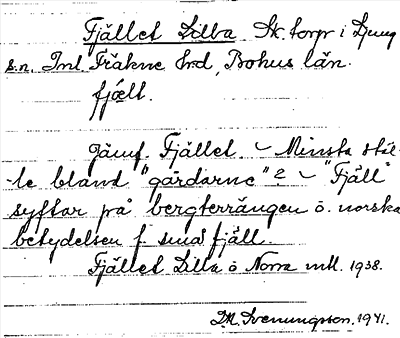 Fjället Lilla Sk. torp i Ljung
s.n. Inl. Fräkne hd, Bohus län.
fjǽlt.
Jämf. Fjället. – Minsta stäl-
le bland "gårdarne"? – "Fjäll"
syftar på bergterrängen o. norska
betydelsen f. små fjäll.
Fjället Lilla o Norra mtl. 1938.
D.A. Svenungsson. 1941.